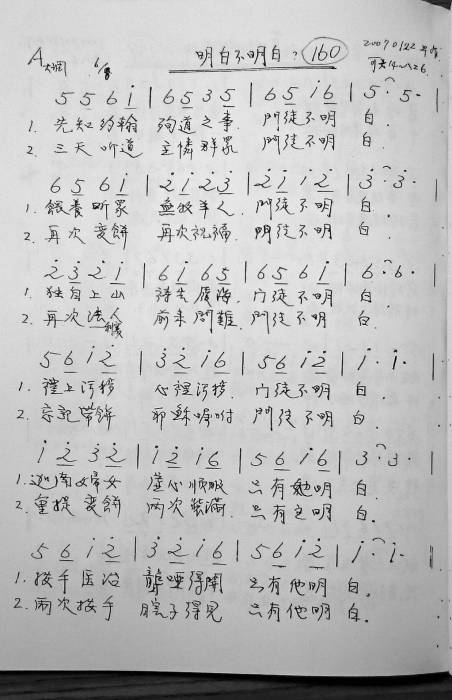 A大调 6/8 明白不明白? 160 20070122
5 5 6 i | 6 5 3 5 | 6 5 i 6 | 5· 5·
1. 先知约翰 殉道之事. 門徒不明 白.
2. 三天听道 主憐群眾 門徒不明 白.
6 5 6 i | 2 i 2 3 | 2 i i 2 | 3· 3·
1. 餵養听眾 無牧羊人. 門徒不明 白.
2. 再次变餅 再次祝福. 門徒不明 白.
2 3 2 i | 6 i 6 5 | 6 5 6 i | 6· 6·
1. 独自上山 履海. 门徒不明 白
2. 再次法人 前来問難. 門徒不明 白.
5 6 i 2 | 3 2 i 6 | 5 6 i 2 | i· i·
1. 禮上污秽 心裡污秽. 门徒不明 白.
2. 忘記带餅 耶穌吩咐 門徒不明 白.
i 2 3 2 | i 2 i 6 | 5 6 i 6 | 3· 3·
1. 迦南婦女 虚心顺服 只有她明 白.
2. 重提变餅 两次装滿. 只有主明 白.
5 6 i 2 | 3 2 i 6 | 5 6 i 2 | i· i·
1. 按手医治 聾啞得開 只有他明 白.
2. 兩次按手 瞎子得見 只有他明 白.